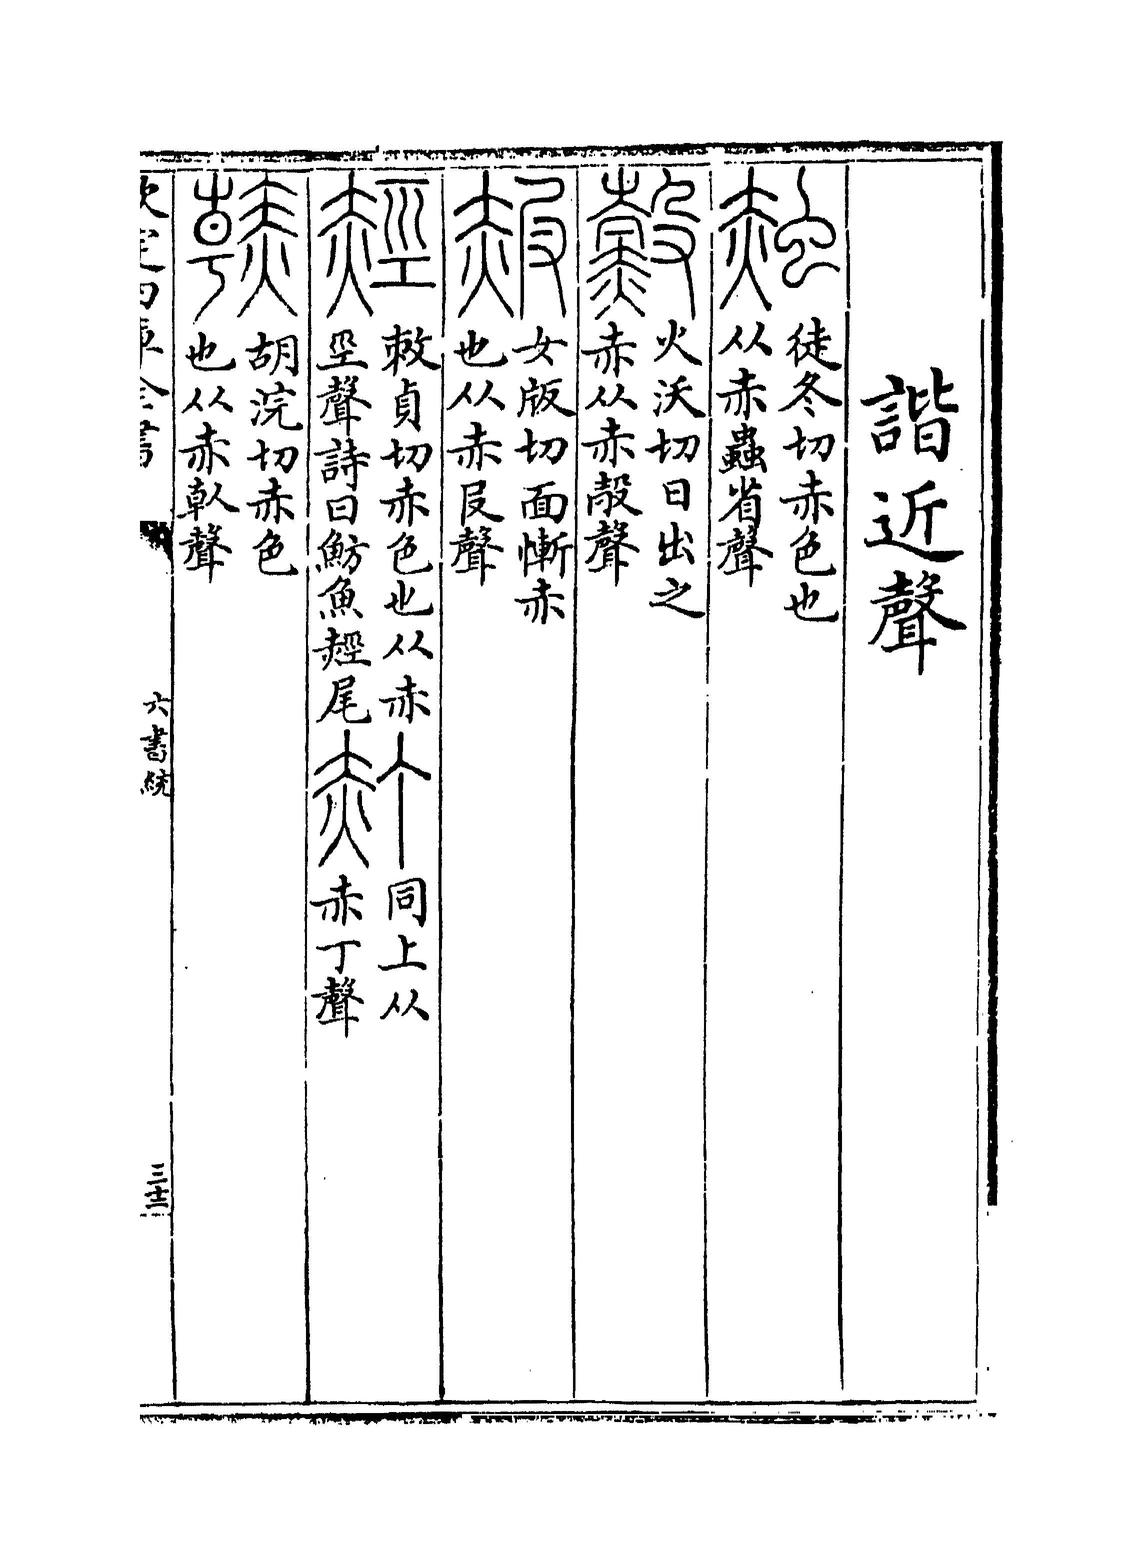 諧近聲
徒冬切赤色也
从赤蟲省聲
火沃切日出之
赤从赤㱿聲
女版切面慚赤
也从赤𠬝聲
敕貞切赤色也从赤
巠聲詩曰魴魚䞓尾
同上从
赤丁聲
胡浣切赤色
也从赤倝聲
欽定四庫全書
六書統
三十三